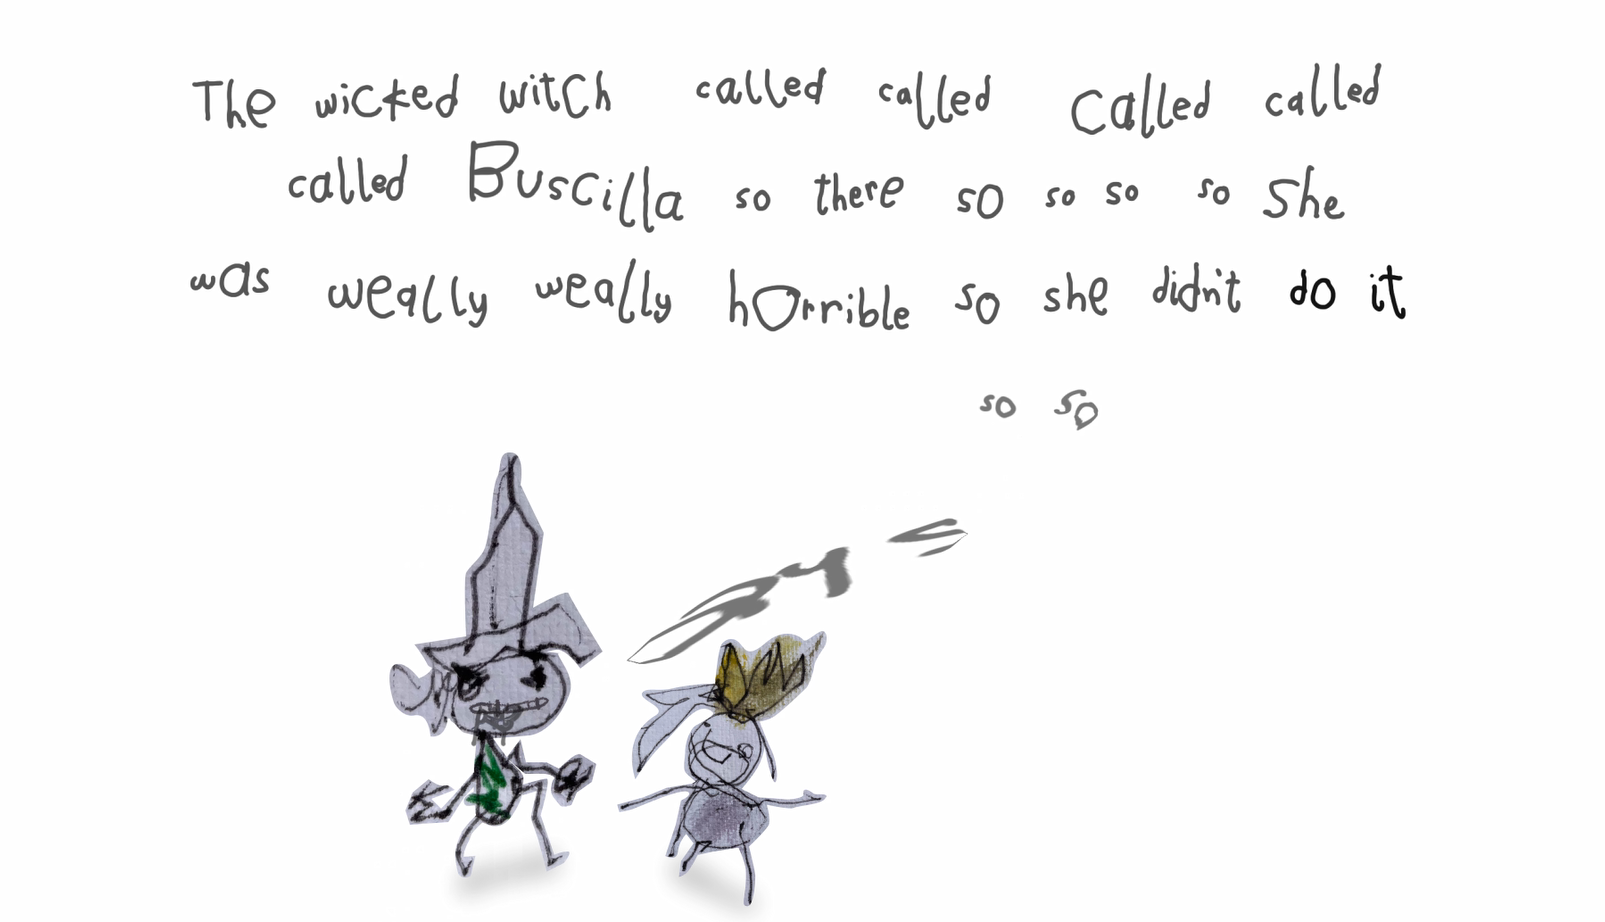 The wicked witch called called called called
called Buscilla so there so so so so she
was weally weally horrible so she didn't do it
so so